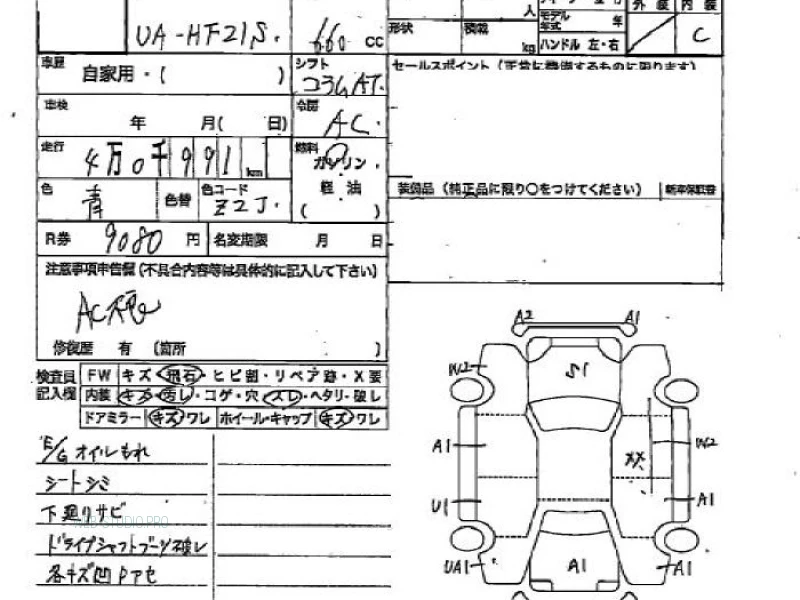 人
モデル
年式 年
外装 内装
UA-HF21S. 660 cc
形状 積載 kg
ハンドル 左・右
C
車歴 自家用・( )
シフト コラムAT.
セールスポイント (正常に機能するものに限ります)
車検 年 月( 日)
冷房 AC.
走行 4万0千991 km
燃料 ガソリン・
軽油
( )
色 青 色替 色コード Z2J.
装備品 (純正品に限り○をつけてください) 新車保証書
R券 9080 円 名変期限 月 日
注意事項申告欄 (不具合内容等は具体的に記入して下さい)
修復歴 有 (箇所 )
検査員
記入欄
FW キズ・飛石・ヒビ割・リペア跡・X要
内装 キズ・汚レ・コゲ・穴・スレ・ヘタリ・破レ
ドアミラー キズワレ ホイール・キャップ キズワレ
E/G オイルもれ
シートシミ
下廻りサビ
ドライブシャフトブーツ破レ
各キズ凹Pアセ
A2 A1
W2 S1
A1 XX W2
U1 A1
UA1 A1 A1